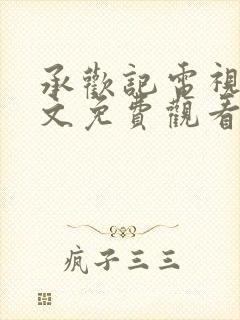 承歡記電視
文免費觀看
疯子三三